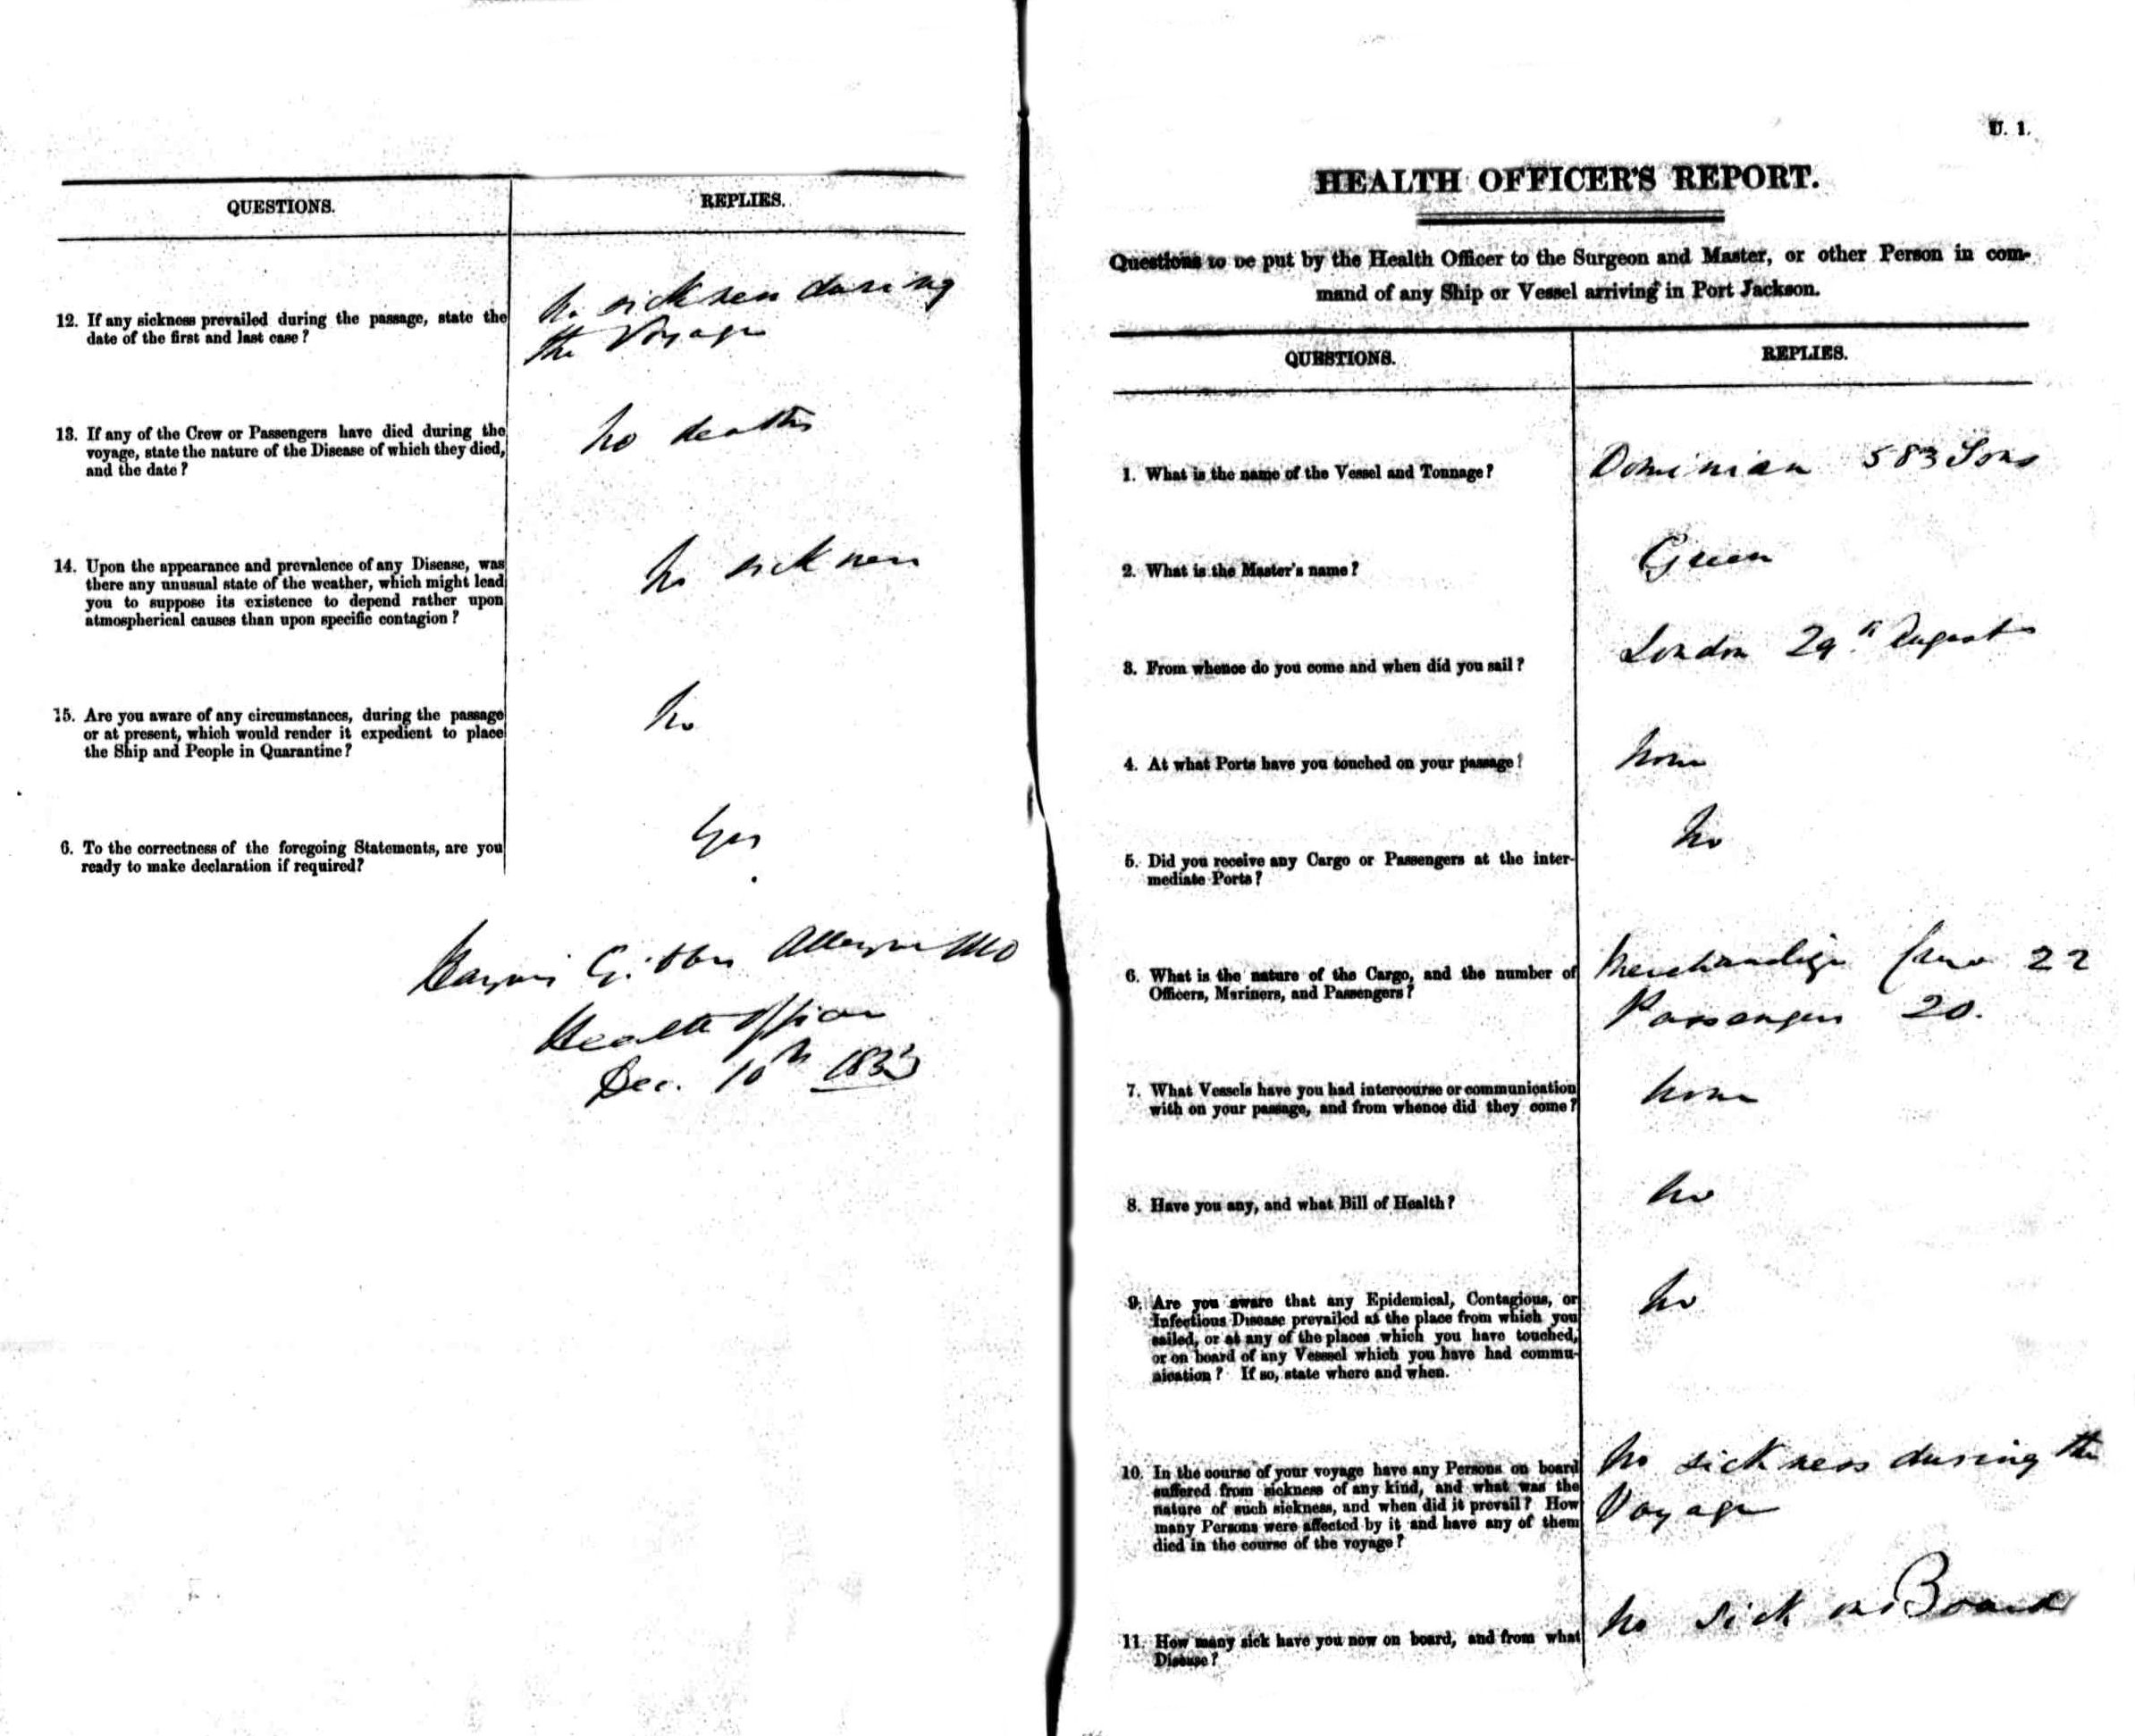 QUESTIONS.
REPLIES.
12. If any sickness prevailed during the passage, state the
date of the first and last case?
no sickness during
the Voyage
13. If any of the Crew or Passengers have died during the
voyage, state the nature of the Disease of which they died,
and the date?
no deaths
14. Upon the appearance and prevalence of any Disease, was
there any unusual state of the weather, which might lead
you to suppose its existence to depend rather upon
atmospherical causes than upon specific contagion?
no sickness
15. Are you aware of any circumstances, during the passage
or at present, which would render it expedient to place
the Ship and People in Quarantine?
no
6. To the correctness of the foregoing Statements, are you
ready to make declaration if required?
Yes
Haynes Gibbes Alleyne MD
Health Officer
Dec. 10th
U. 1.
HEALTH OFFICER'S REPORT.
Questions to be put by the Health Officer to the Surgeon and Master, or other Person in com-
mand of any Ship or Vessel arriving in Port Jackson.
QUESTIONS.
REPLIES.
1. What is the name of the Vessel and Tonnage?
Dominion 583 Tons
2. What is the Master's name?
Green
3. From whence do you come and when did you sail?
London 29th August
4. At what Ports have you touched on your passage?
none
5. Did you receive any Cargo or Passengers at the inter-
mediate Ports?
no
6. What is the nature of the Cargo, and the number of
Officers, Mariners, and Passengers?
Merchandize Crew 22
Passengers 20.
7. What Vessels have you had intercourse or communication
with on your passage, and from whence did they come?
none
8. Have you any, and what Bill of Health?
no
9. Are you aware that any Epidemical, Contagious, or
Infectious Disease prevailed at the place from which you
sailed, or at any of the places which you have touched,
or on board of any Vesssel which you have had commu-
nication? If so, state where and when.
no
10. In the course of your voyage have any Persons on board
suffered from sickness of any kind, and what was the
nature of such sickness, and when did it prevail? How
many Persons were affected by it and have any of them
died in the course of the voyage?
no sickness during the
Voyage
11. How many sick have you now on board, and from what
Disease?
no sick on Board